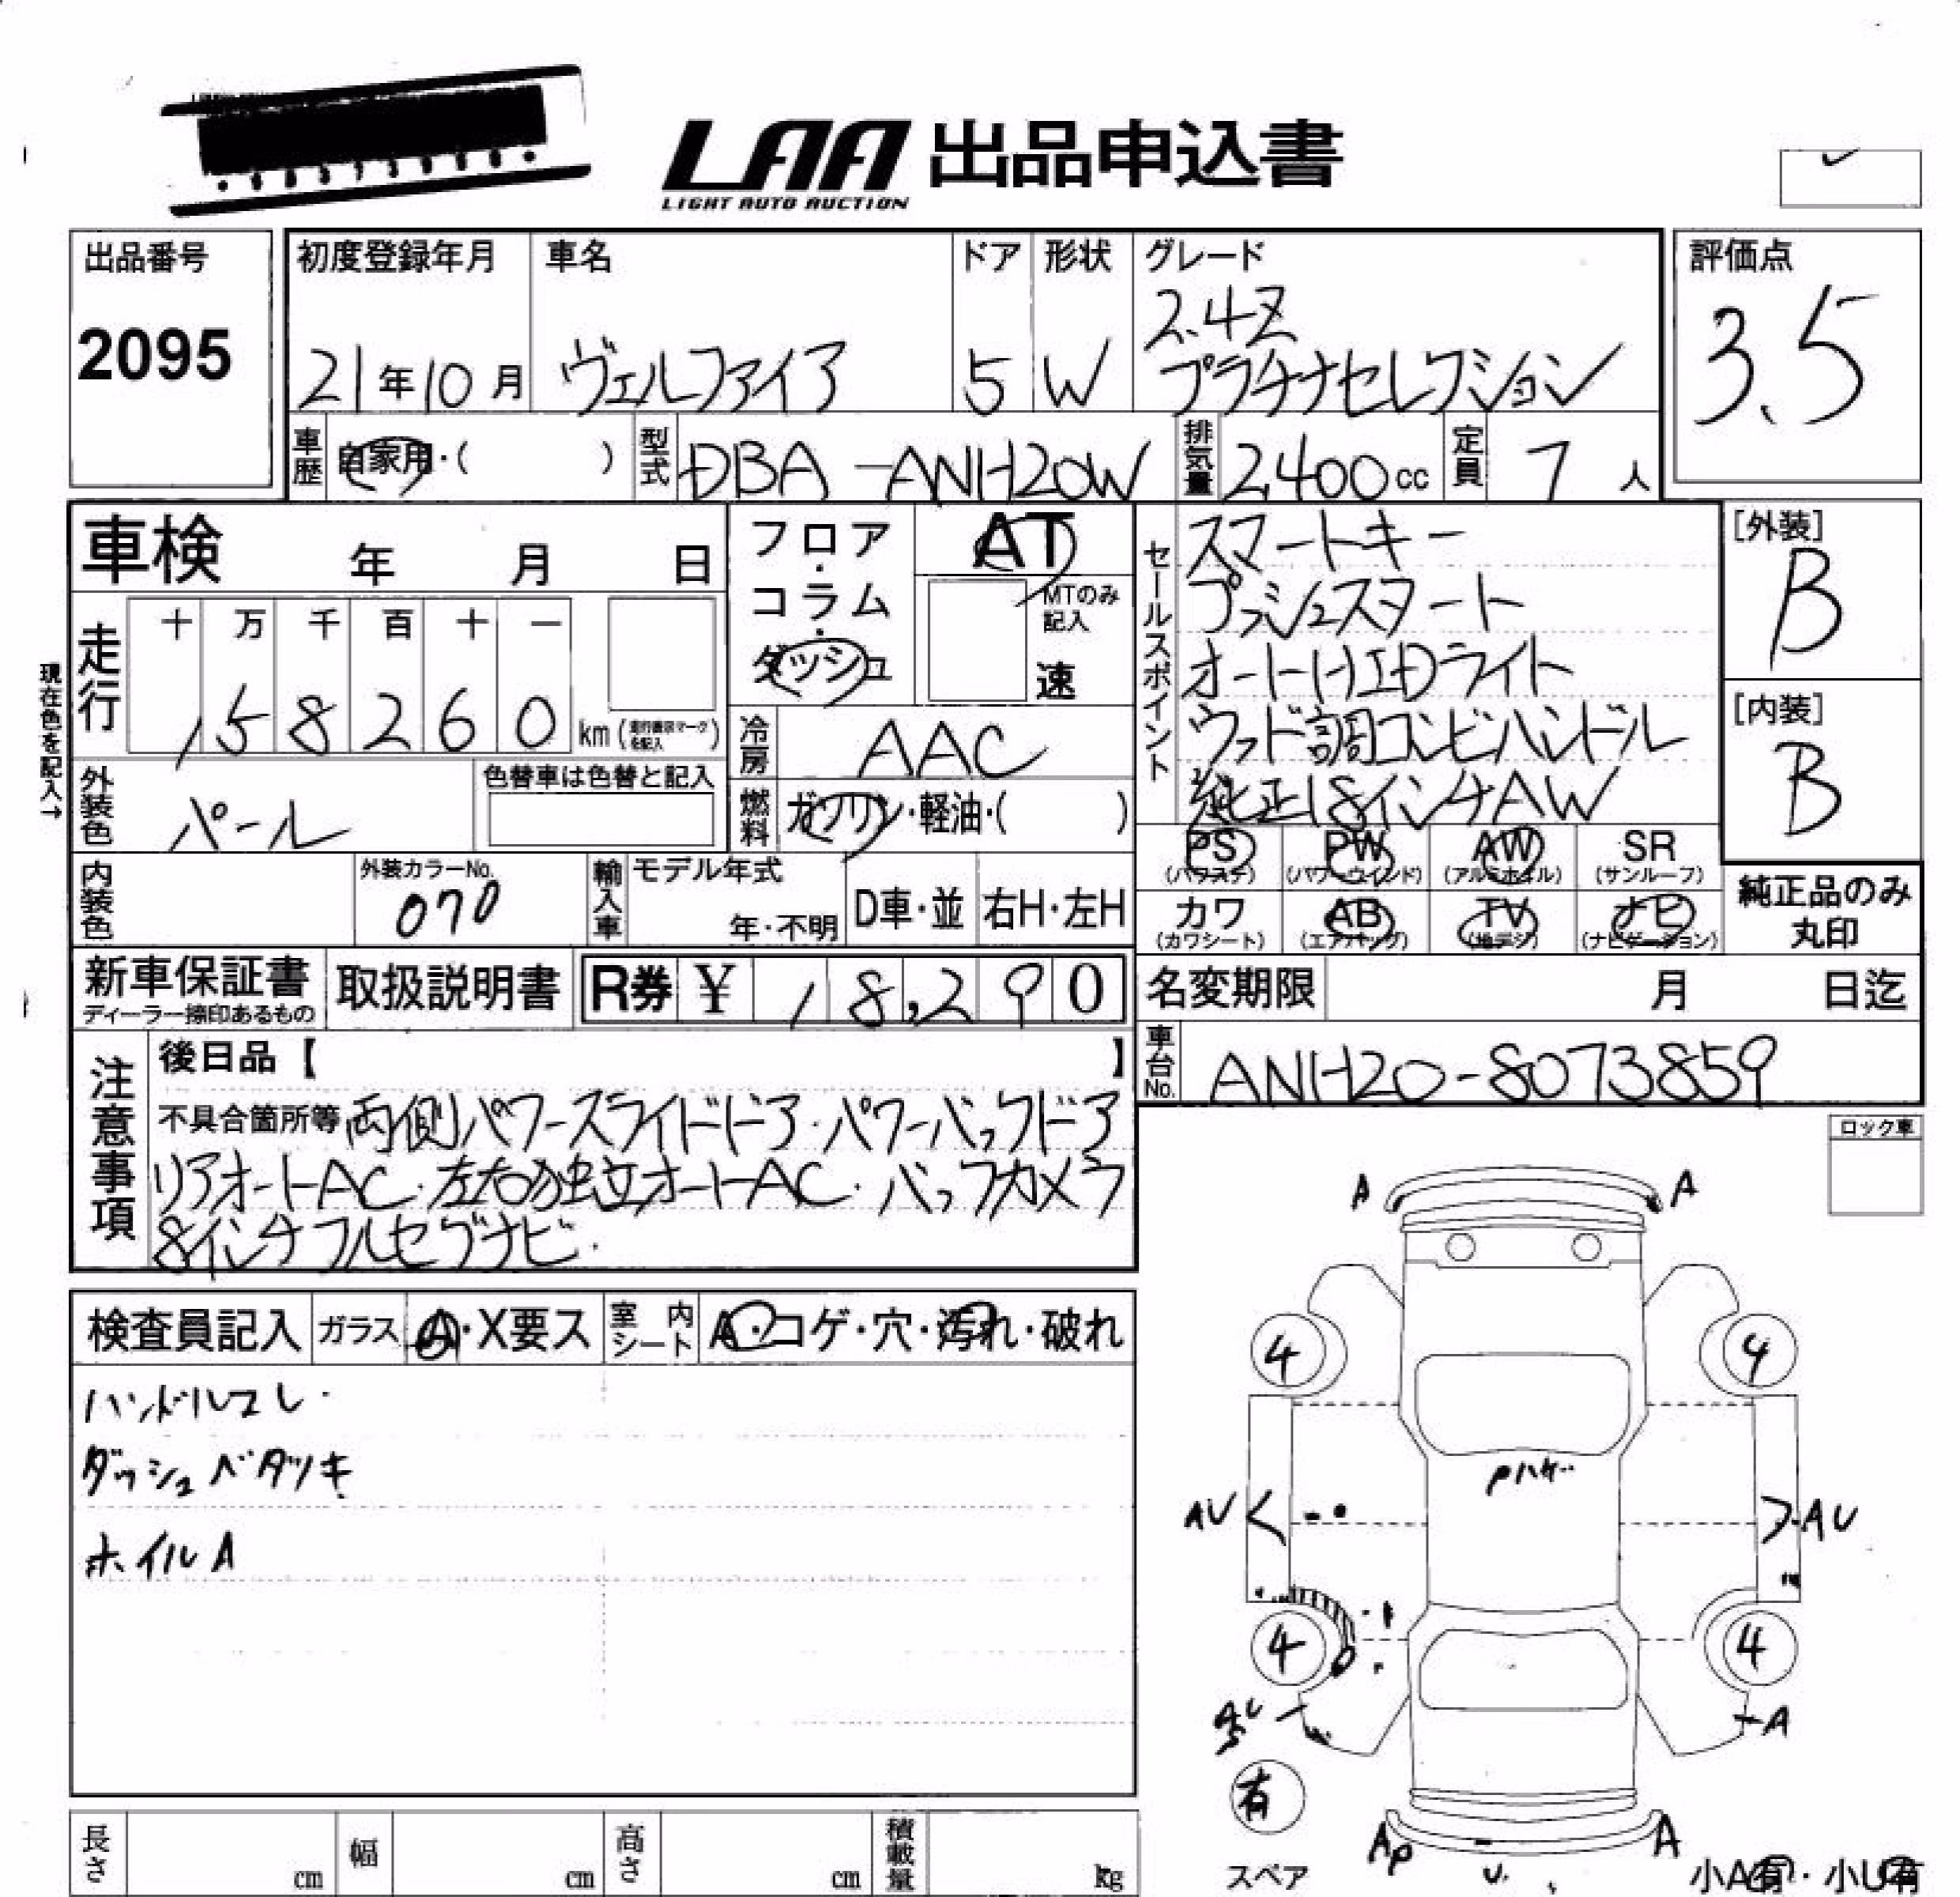 LAA 出品申込書
LIGHT AUTO AUCTION
出品番号
2095
初度登録年月
21年10月
車名
ヴェルファイア
ドア
5
形状
W
グレード
2.4Z
プラチナセレクション
評価点
3.5
車歴
自家用・( )
型式
DBA-ANH20W
排気量
2,400cc
定員
7人
車検 年 月 日
走行
十 万 千 百 十 一
158260 km
現在色を記入→
外装色
パール
色替車は色替と記入
内装色
外装カラーNo.
070
フロア・コラム・ダッシュ
AT
MTのみ記入
速
冷房
AAC
燃料
ガソリン・軽油・( )
輸入車
モデル年式
年・不明
D車・並
右H・左H
セールスポイント
スマートキー
プッシュスタート
オートHIDライト
ウッド調コンビハンドル
純正18インチAW
[外装]
B
[内装]
B
PS (パワステ)
PW (パワーウィンド)
AW (アルミホイル)
SR (サンルーフ)
カワ (カワシート)
AB (エアバッグ)
TV (地デジ)
ナビ (ナビゲーション)
純正品のみ丸印
新車保証書
ディーラー捺印あるもの
取扱説明書
R券 ¥ 18,290
名変期限 月 日迄
車台No.
ANH20-8073859
注意事項
後日品【 】
不具合箇所等 両側パワースライドドア・パワーバックドア
リアオートAC・左右独立オートAC・バックカメラ
8インチフルセグナビ・
ロック車
検査員記入
ガラス
A・X要ス
室内シート
A・コゲ・穴・汚れ・破れ
ハンドルスレ・
ダッシュベタツキ
ホイルA
A
A
4
4
Pハゲ
AU
AU
4
4
A
有
スペア
AP
U
A
小A有・小U有
長さ cm
幅 cm
高さ cm
積載量 kg